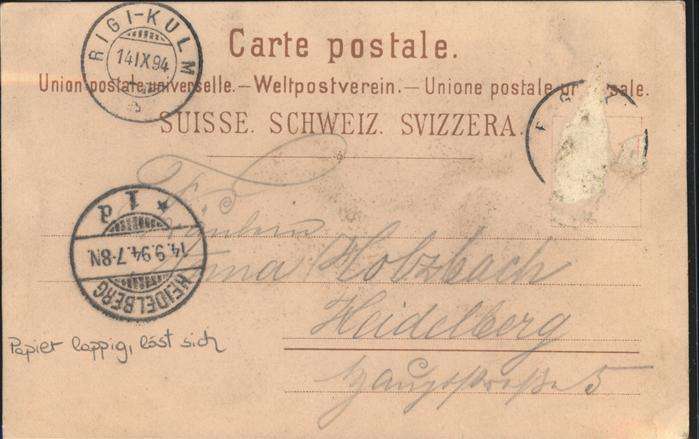 RIGI-KULM
14 IX 94
Carte postale.
Union postale universelle. — Weltpostverein. — Unione postale
SUISSE. SCHWEIZ. SVIZZERA.
Holzbach
Heidelberg
Hauptstraße 5
1 d
14.9.94.7-8N.
HEIDELBERG
Papier lappig, löst sich